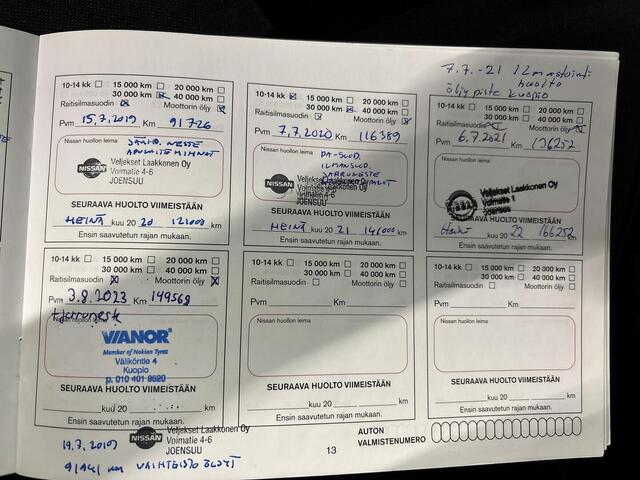 7.7.-21 Ilmastointi
huolto
öljypiste Kuopio
10-14 kk 15 000 km 20 000 km
30 000 km 40 000 km
Raitisilmasuodin Moottorin öljy
Pvm 15.7.2019 Km 91726
Nissan huollon leima
NISSAN
Veljekset Laakkonen Oy
Voimatie 4-6
JOENSUU
SEURAAVA HUOLTO VIIMEISTÄÄN
HEINÄ kuu 20 20 121000 km
Ensin saavutetun rajan mukaan.
10-14 kk 15 000 km 20 000 km
30 000 km 40 000 km
Raitisilmasuodin Moottorin öljy
Pvm 7.7.2020 Km 116389
Nissan huollon leima
PA-SUOD.
ILMANSUOD.
JARRUNESTE
NISSAN
Veljekset Laakkonen Oy
Voimatie 4-6
JOENSUU
SEURAAVA HUOLTO VIIMEISTÄÄN
HEINÄ kuu 20 21 141000 km
Ensin saavutetun rajan mukaan.
10-14 kk 15 000 km 20 000 km
30 000 km 40 000 km
Raitisilmasuodin Moottorin öljy
Pvm 6.7.2021 Km 136252
Nissan huollon leima
Veljekset Laakkonen Oy
Voimatie 1
Joensuu
SEURAAVA HUOLTO VIIMEISTÄÄN
kuu 20 22 166252 km
Ensin saavutetun rajan mukaan.
10-14 kk 15 000 km 20 000 km
30 000 km 40 000 km
Raitisilmasuodin Moottorin öljy
Pvm 3.8.2023 Km 149568
Nissan huollon leima
VIANOR
Member of Nokian Tyres
Väliköntie 4
Kuopio
p. 010 401 8620
SEURAAVA HUOLTO VIIMEISTÄÄN
kuu 20 km
Ensin saavutetun rajan mukaan.
10-14 kk 15 000 km 20 000 km
30 000 km 40 000 km
Raitisilmasuodin Moottorin öljy
Pvm Km
Nissan huollon leima
SEURAAVA HUOLTO VIIMEISTÄÄN
kuu 20 km
Ensin saavutetun rajan mukaan.
10-14 kk 15 000 km 20 000 km
30 000 km 40 000 km
Raitisilmasuodin Moottorin öljy
Pvm Km
Nissan huollon leima
SEURAAVA HUOLTO VIIMEISTÄÄN
kuu 20 km
Ensin saavutetun rajan mukaan.
NISSAN
Veljekset Laakkonen Oy
Voimatie 4-6
JOENSUU
19.7.2019
km VAIHTEISTO ÖLJYT
13
AUTON
VALMISTENUMERO